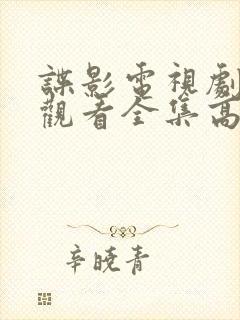 諜影電視劇
觀看全集高
辛曉青